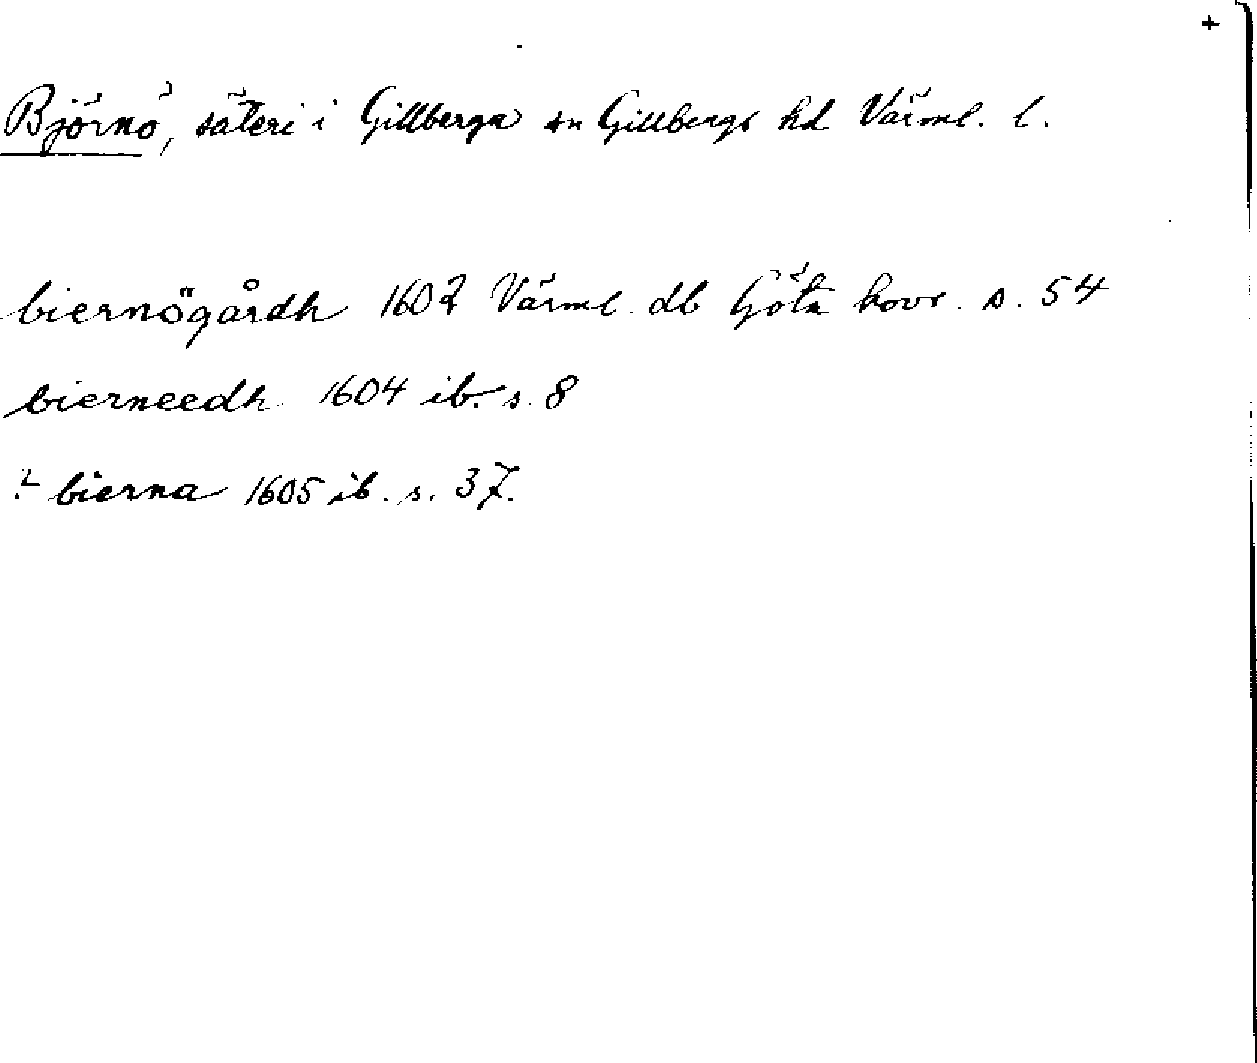 +
Björnö, säteri i Gillberga sn Gillbergs hd Värml. l.
biernögårdh 1602 Värml. db Göta hovr. s. 54
bierneedh 1604 ib. s. 8
? bierna 1605 ib. s. 37.